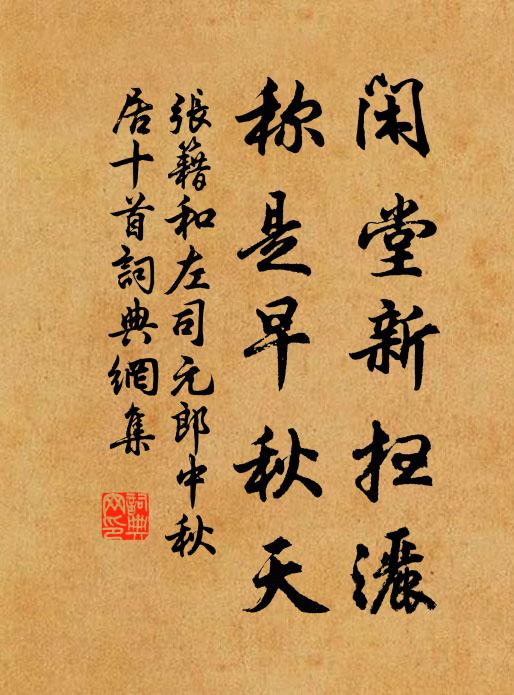 闲堂新扫灑
称是早秋天
張籍和左司元郎中秋
居十首詞典網集
詞典
网印